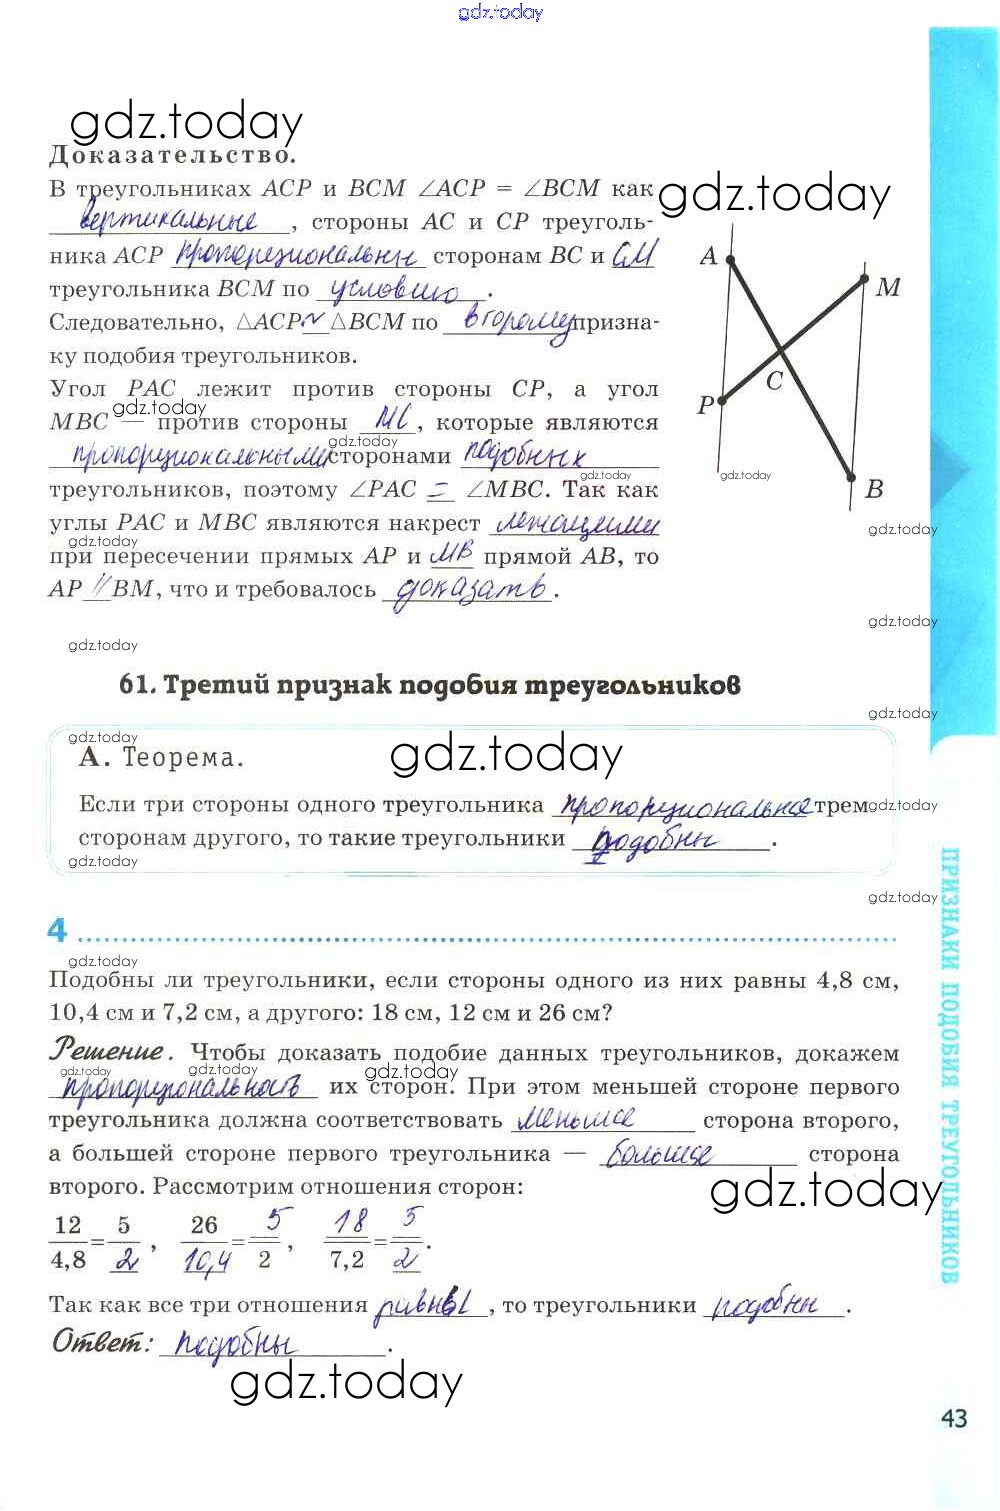 gdz.today
gdz.today
Доказательство.
В треугольниках ACP и BCM ∠ACP = ∠BCM как
gdz.today
вертикальные, стороны AC и CP треуголь-
ника ACP пропорциональны сторонам BC и CM
треугольника BCM по условию.
Следовательно, △ACP ~ △BCM по второму призна-
ку подобия треугольников.
Угол PAC лежит против стороны CP, а угол
gdz.today
MBC — против стороны MC, которые являются
gdz.today
пропорциональными сторонами подобных
gdz.today
gdz.today
треугольников, поэтому ∠PAC = ∠MBC. Так как
углы PAC и MBC являются накрест лежащими
gdz.today
gdz.today
при пересечении прямых AP и MB прямой AB, то
AP || BM, что и требовалось доказать.
A
M
C
P
B
gdz.today
gdz.today
61. Третий признак подобия треугольников
gdz.today
gdz.today
А. Теорема.
gdz.today
Если три стороны одного треугольника пропорциональна трем
gdz.today
сторонам другого, то такие треугольники подобны.
gdz.today
gdz.today
4
gdz.today
Подобны ли треугольники, если стороны одного из них равны 4,8 см,
10,4 см и 7,2 см, а другого: 18 см, 12 см и 26 см?
Решение. Чтобы доказать подобие данных треугольников, докажем
gdz.today gdz.today gdz.today
пропорциональность их сторон. При этом меньшей стороне первого
треугольника должна соответствовать меньшая сторона второго,
а большей стороне первого треугольника — большая сторона
второго. Рассмотрим отношения сторон:
gdz.today
12/4,8 = 5/2, 26/10,4 = 5/2, 18/7,2 = 5/2.
Так как все три отношения равны, то треугольники подобны.
Ответ: подобны.
gdz.today
ПРИЗНАКИ ПОДОБИЯ ТРЕУГОЛЬНИКОВ
43